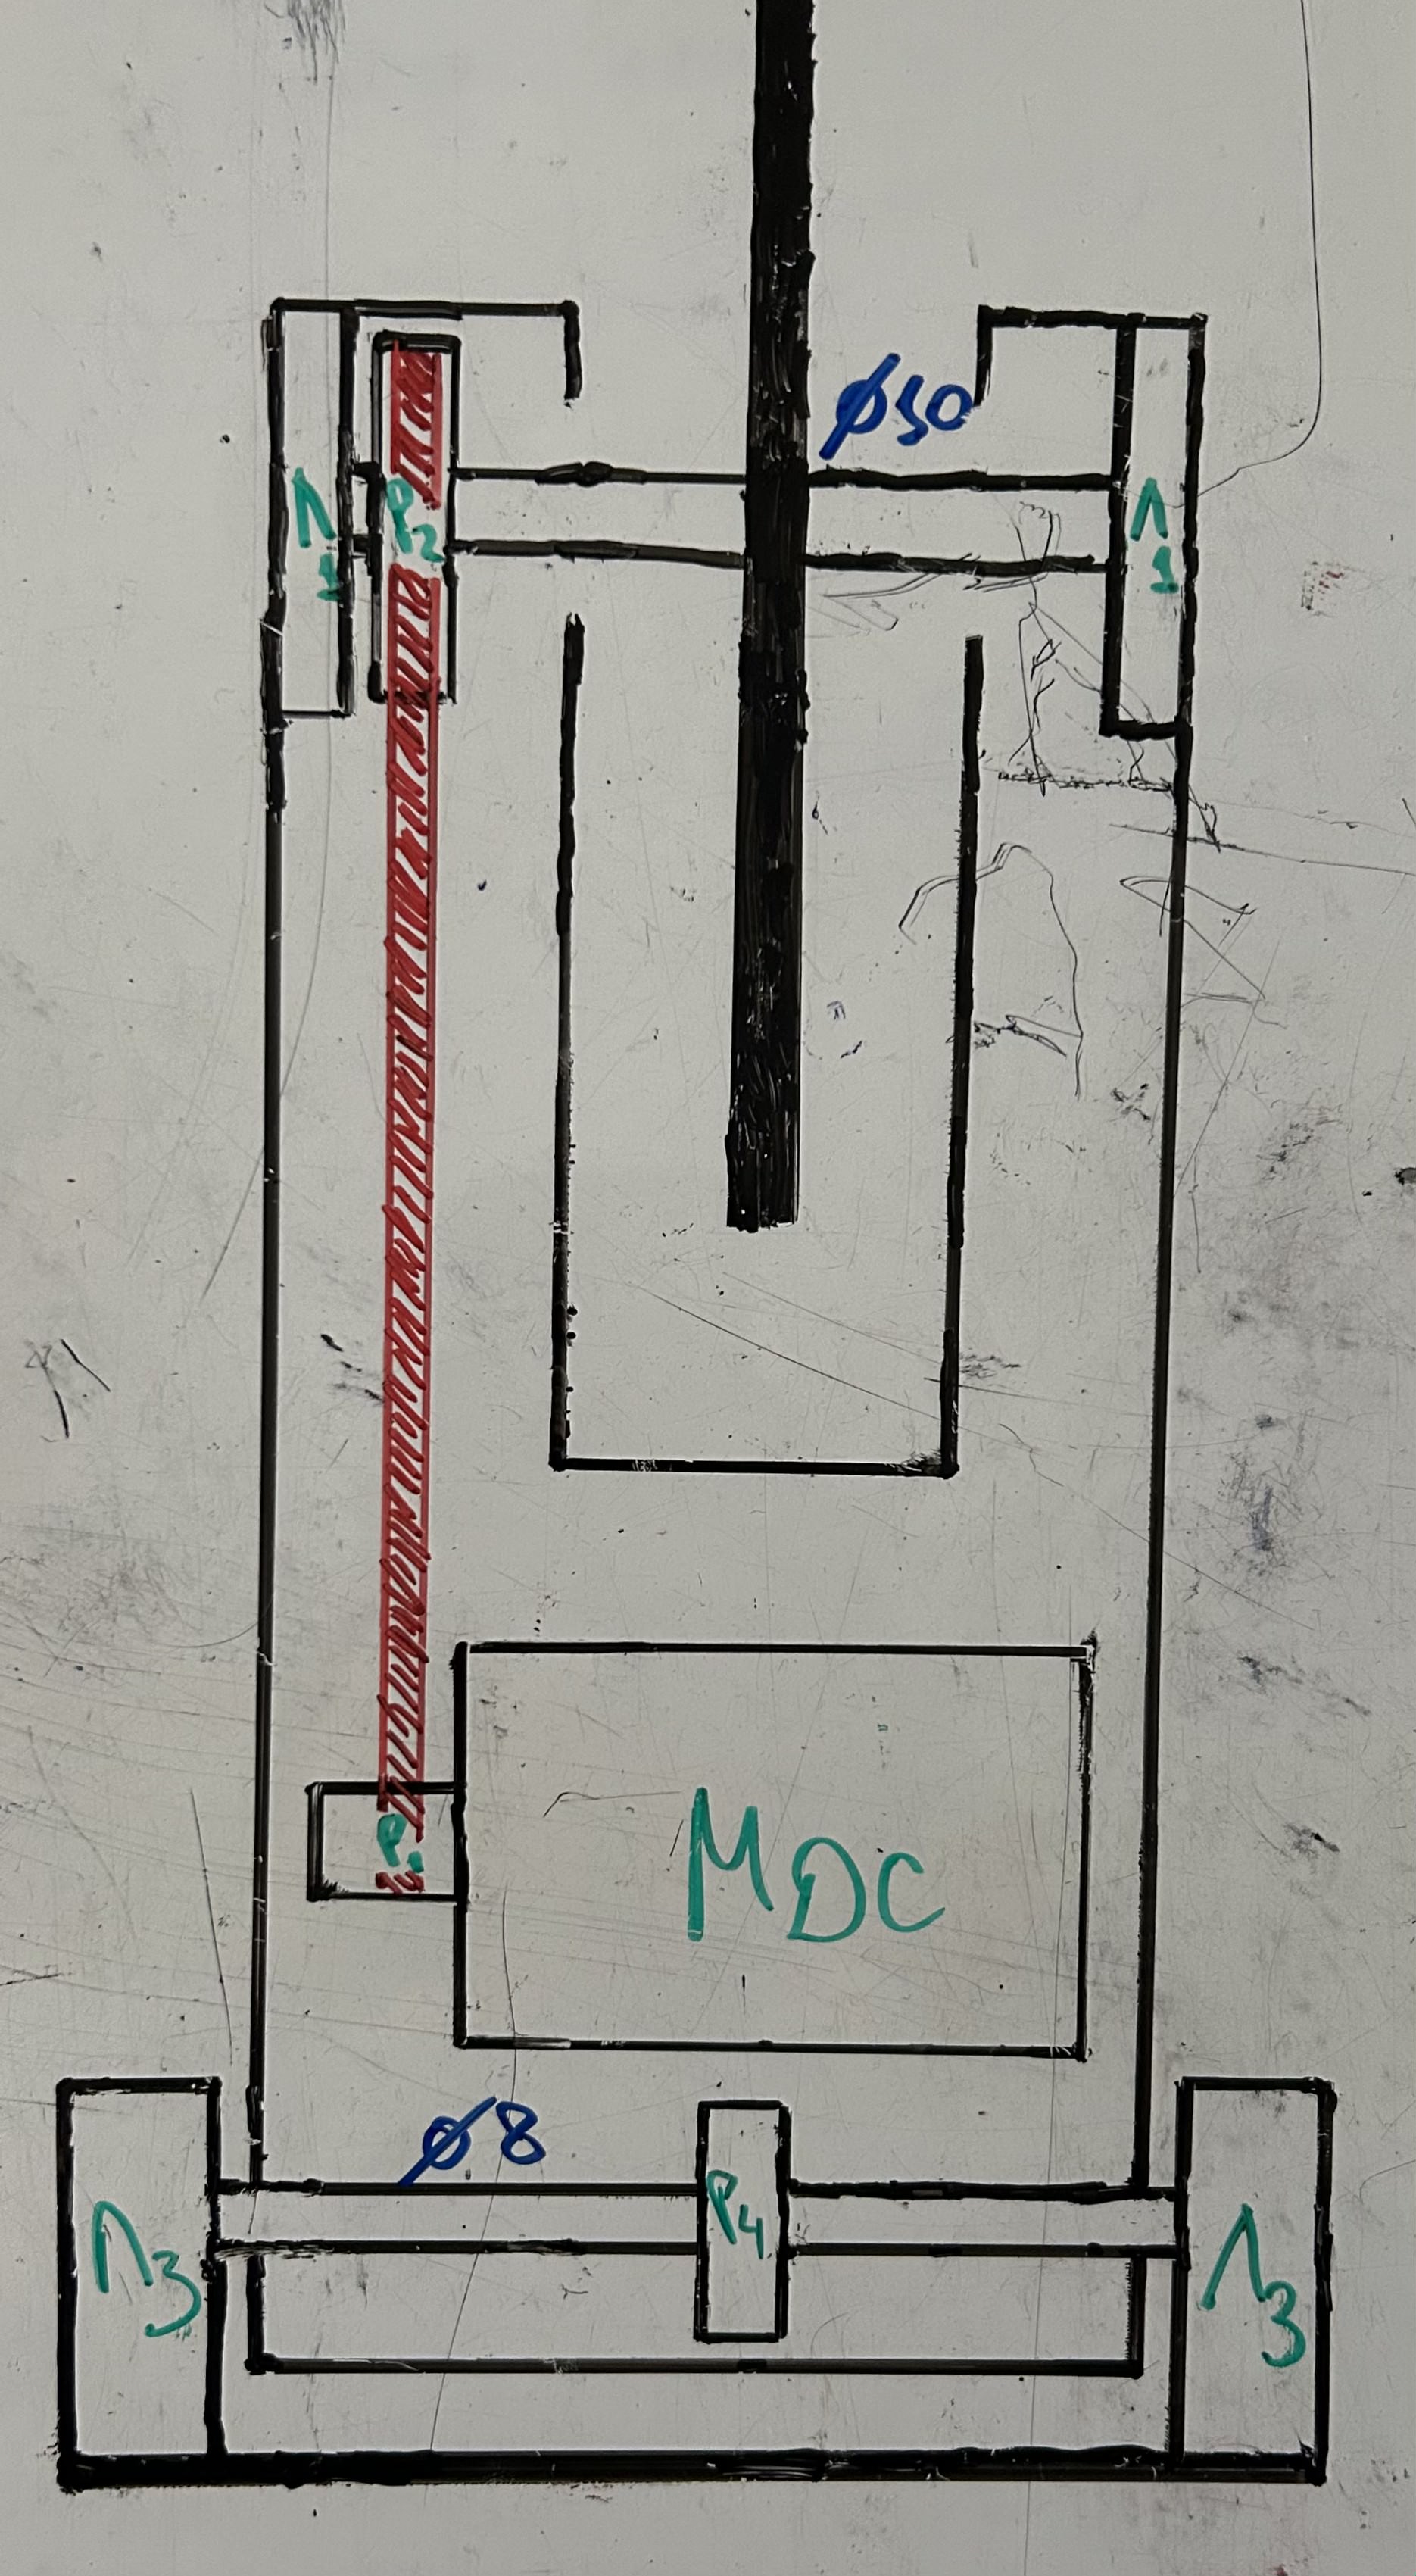 ø10
Λ1
P2
Λ1
P1
MDC
ø8
P4
Λ3
Λ3